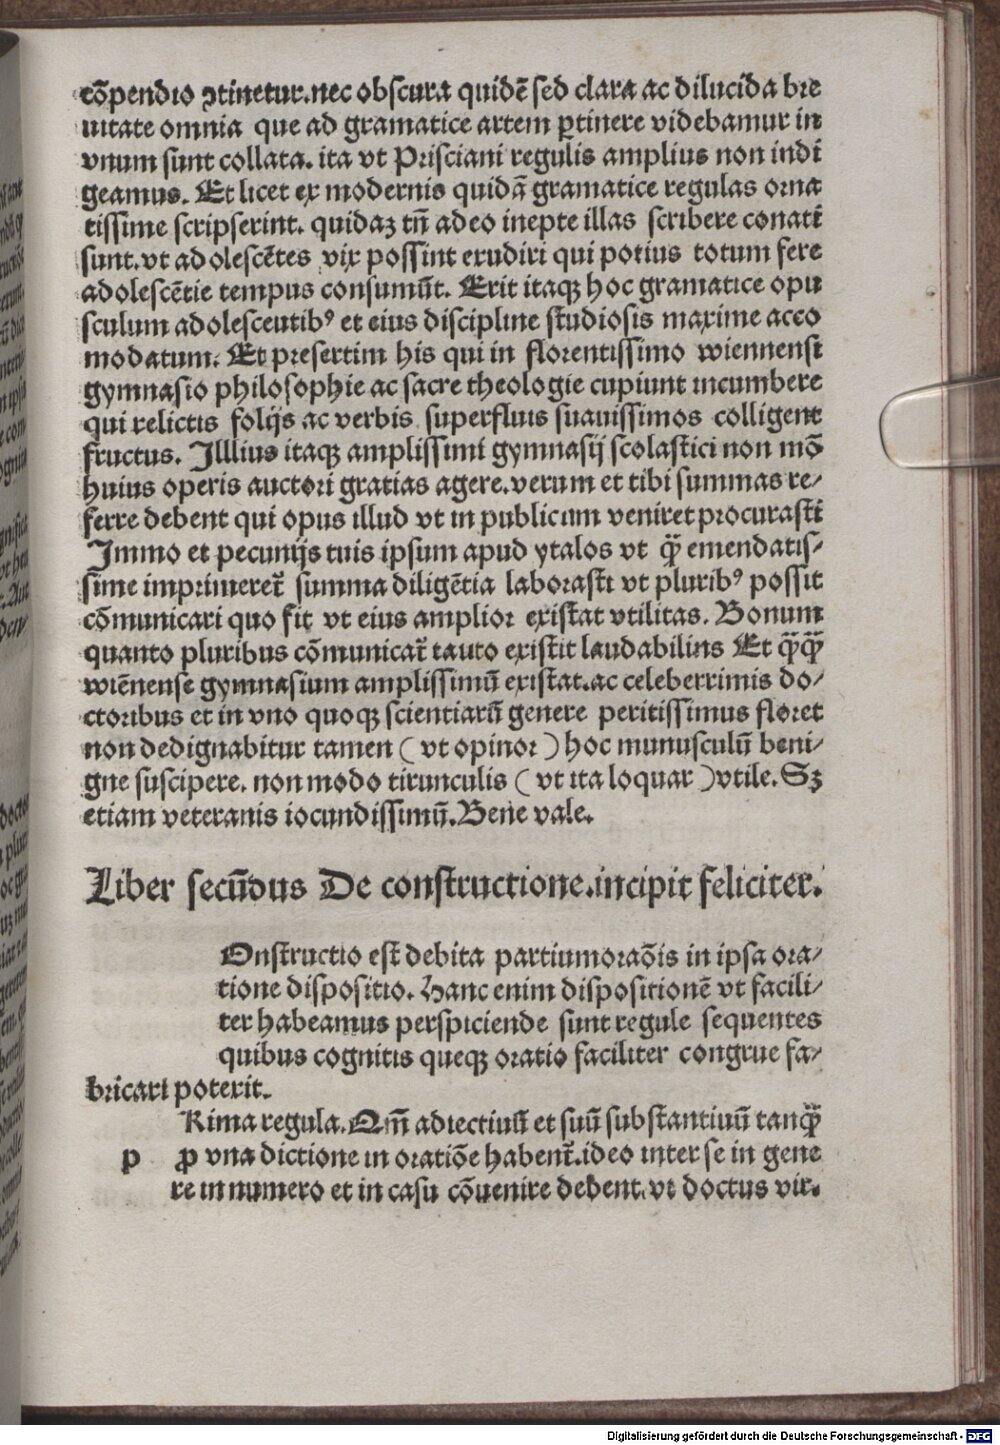 cõpendio ꝯtinetur.nec obscura quidē sed clara ac dilucida bre
uitate omnia que ad gramatice artem ꝑtinere videbamur in
vnum sunt collata. ita vt Prisciani regulis amplius non indi
geamus. Et licet ex modernis quidã gramatice regulas orna
tissime scripserint. quidaꝫ tñ adeo inepte illas scribere conati
sunt.vt adolescẽtes vix possint erudiri qui potius totum fere
adolescẽtie tempus consumũt. Erit itaqꝫ hoc gramatice opu
sculum adolescentibꝰ et eius discipline studiosis maxime acco
modatum. Et presertim his qui in florentissimo wiennensi
gymnasio philosophie ac sacre theologie cupiunt incumbere
qui relictis folijs ac verbis superfluis suauissimos colligent
fructus. Illlius itaqꝫ amplissimi gymnasij scolastici non mõ
huius operis auctori gratias agere.verum et tibi summas re/
ferre debent qui opus illud vt in publicum veniret procurasti
Immo et pecunijs tuis ipsum apud ytalos vt q̃ emendatis/
sime imprimereť summa diligẽtia laborasti vt pluribꝰ possit
cõmunicari quo fit vt eius amplior existat vtilitas. Bonum
quanto pluribus cõmunicať tauto existit laudabilius Et q̃q̃
wiẽnense gymnasium amplissimũ existat.ac celeberrimis do/
ctoribus et in vno quoqꝫ scientiarũ genere peritissimus floret
non dedignabitur tamen (vt opinor) hoc munusculũ beni/
gne suscipere. non modo tirunculis (vt ita loquar) vtile. Sꝫ
etiam veteranis iocundissimũ.Bene vale.
Liber secũdus De constructione.incipit feliciter.
Onstructio est debita partiumoraõis in ipsa ora/
tione dispositio. Hanc enim dispositionē vt facili/
ter habeamus perspiciende sunt regule sequentes
quibus cognitis queqꝫ oratio faciliter congrue fa/
bricari poterit.
Rima regula.Om̃ adiectiuũ et suũ substantiuũ tanq̃
p ꝓ vna dictione in oratiõe habenť.ideo inter se in gene
re in numero et in casu cõuenire debent.vt doctus vir.
Digitalisierung gefördert durch die Deutsche Forschungsgemeinschaft - DFG